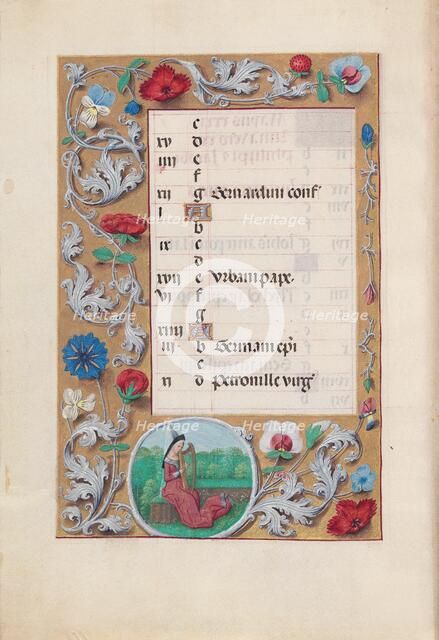 c
xv d
iiii e
f
xii g Bernardini conf'
i A
b
ix c
d
xvii e Urbani pape.
vi f
g
xiiii A
iii b Germani epi
c
xi d Petronille virg'
Heritage
Heritage
Heritage
Heritage
Heritage
Heritage
Heritage
Heritage